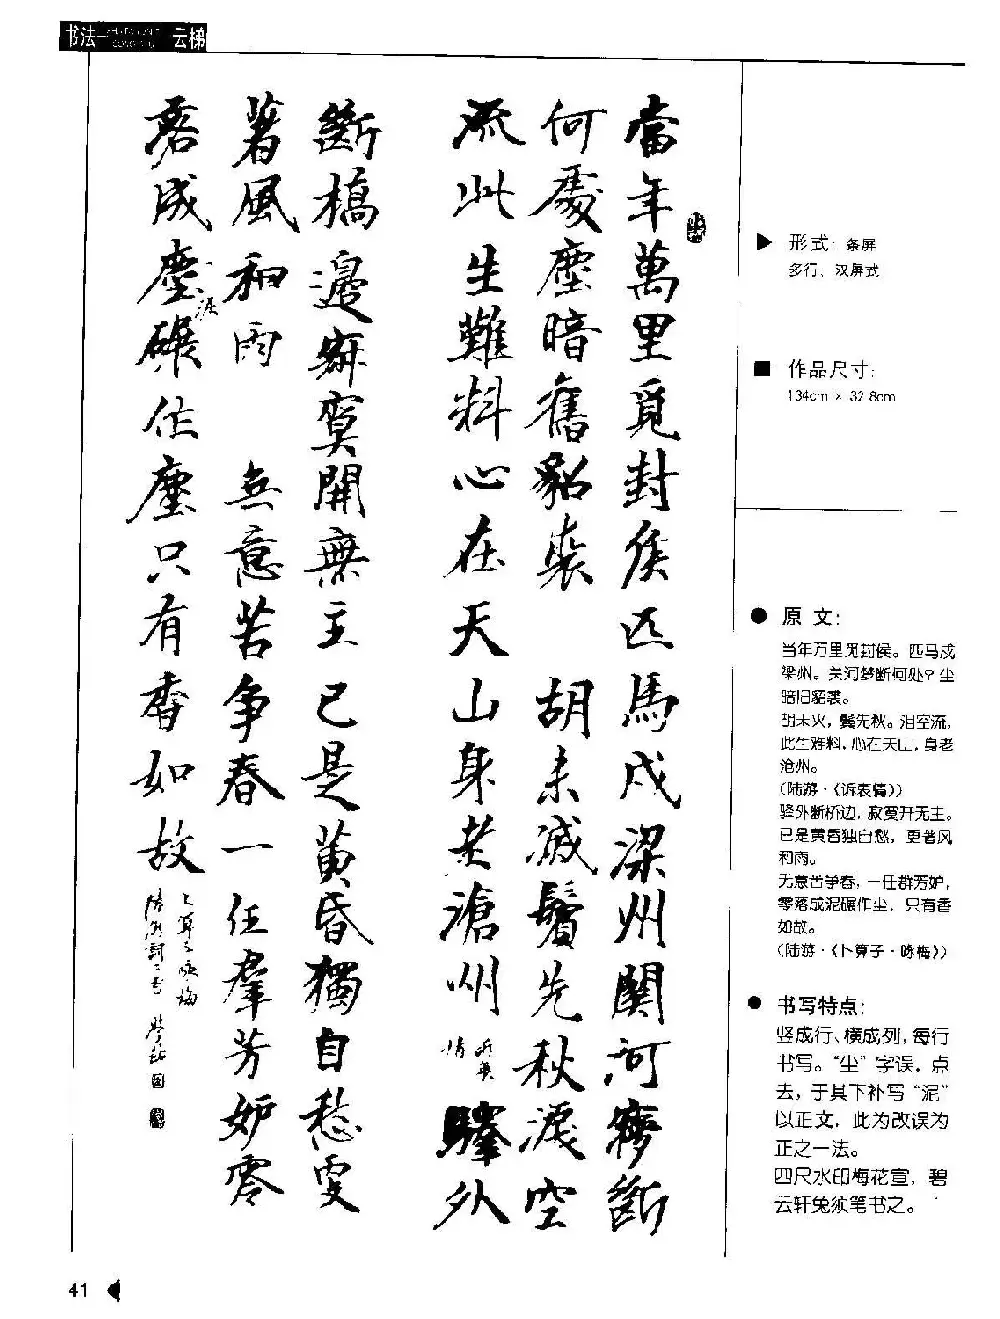 书法 云梯
當年萬里覓封侯匹馬戍梁州關河夢斷
何處塵暗舊貂裘 胡未滅鬢先秋淚空
流此生難料心在天山身老滄州 訴衷情 驛外
斷橋邊寂寞開無主 已是黄昏獨自愁更
著風和雨 無意苦争春一任羣芳妒零
落成塵碾作塵只有香如故
泥
卜算子咏梅
陸游詞二首
▶ 形式：条屏
多行、汉屏式
■ 作品尺寸：
134cm × 32.8cm
● 原文：
当年万里觅封侯。匹马戍
梁州。关河梦断何处？尘
暗旧貂裘。
胡未灭，鬓先秋。泪空流，
此生难料，心在天山，身老
沧州。
（陆游·《诉衷情》）
驿外断桥边，寂寞开无主。
已是黄昏独自愁，更著风
和雨。
无意苦争春，一任群芳妒，
零落成泥碾作尘，只有香
如故。
（陆游·《卜算子·咏梅》）
● 书写特点：
竖成行、横成列，每行
书写。“尘”字误，点
去，于其下补写“泥”
以正文，此为改误为
正之一法。
四尺水印梅花宣，碧
云轩兔须笔书之。
41